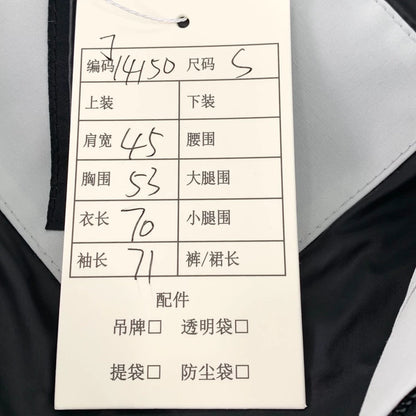 编码 14150 尺码 S
上装 下装
肩宽 45 腰围
胸围 53 大腿围
衣长 70 小腿围
袖长 71 裤/裙长
配件
吊牌□ 透明袋□
提袋□ 防尘袋□